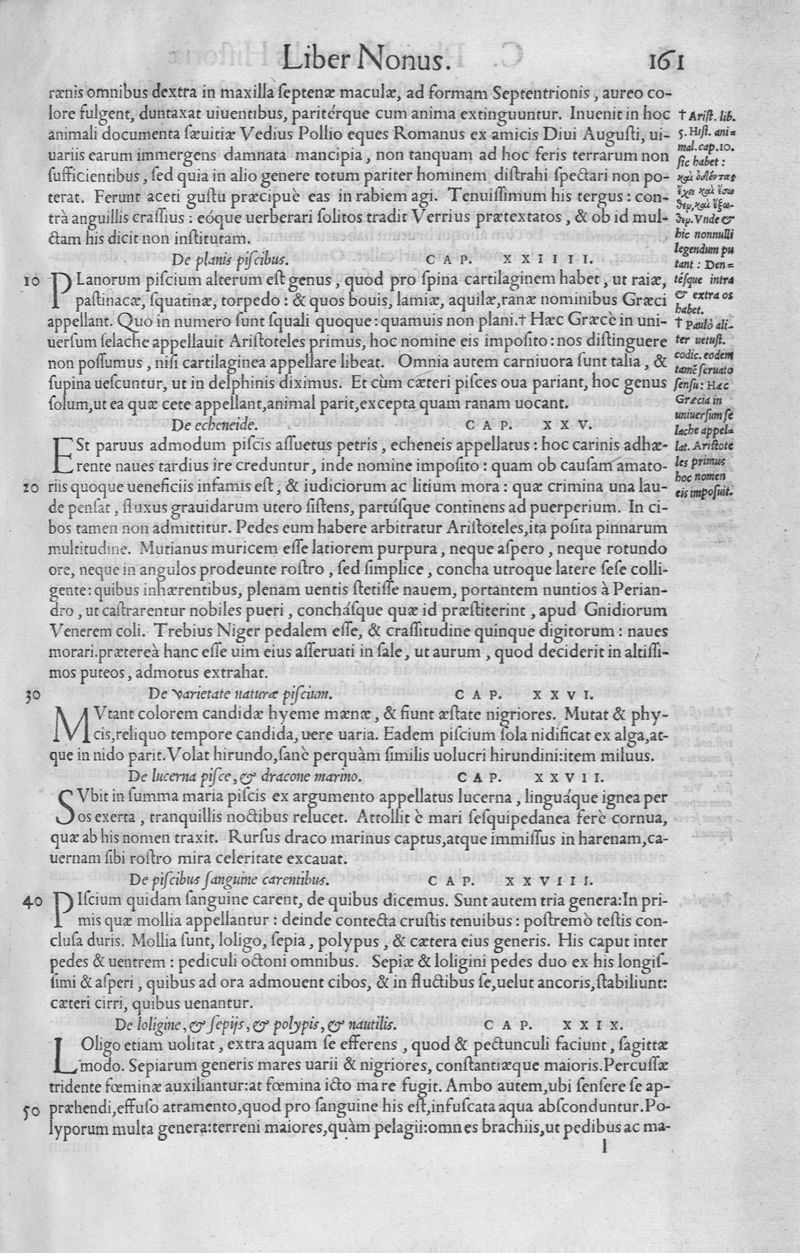 Liber Nonus. 161
rænis omnibus dextra in maxilla ſeptenæ maculæ, ad formam Septentrionis, aureo co-
lore fulgent, duntaxat uiuentibus, paritérque cum anima extinguuntur. Inuenit in hoc
animali documenta ſæuitiæ Vedius Pollio eques Romanus ex amicis Diui Auguſti, ui-
uariis earum immergens damnata mancipia, non tanquam ad hoc feris terrarum non
ſufficientibus, ſed quia in alio genere totum pariter hominem diſtrahi ſpectari non po-
terat. Ferunt aceti guſtu præcipuè eas in rabiem agi. Tenuiſſimum his tergus: con-
trà anguillis craſſius: eóque uerberari ſolitos tradit Verrius prætextatos, & ob id mul-
ctam his dicit non inſtitutam.
De planis piſcibus. CAP. XXIIII.
10 PLanorum piſcium alterum eſt genus, quod pro ſpina cartilaginem habet, ut raiæ,
paſtinacæ, ſquatinæ, torpedo: & quos bouis, lamiæ, aquilæ, ranæ nominibus Græci
appellant. Quo in numero ſunt ſquali quoque: quamuis non plani.† Hæc Græcè in uni-
uerſum ſelache appellauit Ariſtoteles primus, hoc nomine eis impoſito: nos diſtinguere
non poſſumus, niſi cartilaginea appellare libeat. Omnia autem carniuora ſunt talia, &
ſupina ueſcuntur, ut in delphinis diximus. Et cùm cæteri piſces oua pariant, hoc genus
ſolum, ut ea quæ cete appellant, animal parit, excepta quam ranam uocant.
De echeneide. CAP. XXV.
ESt paruus admodum piſcis aſſuetus petris, echeneis appellatus: hoc carinis adhæ-
rente naues tardius ire creduntur, inde nomine impoſito: quam ob cauſam amato-
20 riis quoque ueneficiis infamis eſt, & iudiciorum ac litium mora: quæ crimina una lau-
de penſat, fluxus grauidarum utero ſiſtens, partúſque continens ad puerperium. In ci-
bos tamen non admittitur. Pedes eum habere arbitratur Ariſtoteles, ita poſita pinnarum
multitudine. Mutianus muricem eſſe latiorem purpura, neque aſpero, neque rotundo
ore, neque in angulos prodeunte roſtro, ſed ſimplice, concha utroque latere ſeſe colli-
gente: quibus inhærentibus, plenam uentis ſtetiſſe nauem, portantem nuntios à Perian-
dro, ut caſtrarentur nobiles pueri, concháſque quæ id præſtiterint, apud Gnidiorum
Venerem coli. Trebius Niger pedalem eſſe, & craſſitudine quinque digitorum: naues
morari. prætereà hanc eſſe uim eius aſſeruati in ſale, ut aurum, quod deciderit in altiſſi-
mos puteos, admotus extrahat.
30 De varietate naturæ piſcium. CAP. XXVI.
MVtant colorem candidæ hyeme mænæ, & fiunt æſtate nigriores. Mutat & phy-
cis, reliquo tempore candida, uere uaria. Eadem piſcium ſola nidificat ex alga, at-
que in nido parit. Volat hirundo, ſanè perquàm ſimilis uolucri hirundini: item miluus.
De lucerna piſce, & dracone marino. CAP. XXVII.
SVbit in ſumma maria piſcis ex argumento appellatus lucerna, linguáque ignea per
os exerta, tranquillis noctibus relucet. Attollit è mari ſeſquipedanea ferè cornua,
quæ ab his nomen traxit. Rurſus draco marinus captus, atque immiſſus in harenam, ca-
uernam ſibi roſtro mira celeritate excauat.
De piſcibus ſanguine carentibus. CAP. XXVIII.
40 PIſcium quidam ſanguine carent, de quibus dicemus. Sunt autem tria genera: In pri-
mis quæ mollia appellantur: deinde contecta cruſtis tenuibus: poſtremò teſtis con-
cluſa duris. Mollia ſunt, loligo, ſepia, polypus, & cætera eius generis. His caput inter
pedes & uentrem: pediculi octoni omnibus. Sepiæ & loligini pedes duo ex his longiſ-
ſimi & aſperi, quibus ad ora admouent cibos, & in fluctibus ſe, uelut ancoris, ſtabiliunt:
cæteri cirri, quibus uenantur.
De loligine, & ſepijs, & polypis, & nautilis. CAP. XXIX.
LOligo etiam uolitat, extra aquam ſe efferens, quod & pectunculi faciunt, ſagittæ
modo. Sepiarum generis mares uarii & nigriores, conſtantiæque maioris. Percuſſæ
tridente fœminæ auxiliantur: at fœmina icto mare fugit. Ambo autem, ubi ſenſere ſe ap-
50 præhendi, effuſo atramento, quod pro ſanguine his eſt, infuſcata aqua abſconduntur. Po-
lyporum multa genera: terreni maiores, quàm pelagii: omnes brachiis, ut pedibus ac ma-
l
† Ariſt. lib.
5. Hiſt. ani=
mal. cap. 10.
ſic habet:
καὶ ὀδόντας
ἔχει καὶ ἔσω
θεμ, καὶ ἔξω-
θεμ. Vnde &
hic nonnulli
legendum pu
tant: Den=
téſque intra
& extra os
habet.
† Paulò ali-
ter uetuſt.
codic. eodem
tamẽ ſeruato
ſenſu: Hæc
Græcia in
uniuerſum ſe
lache appel=
lat. Ariſtote
les primus
hoc nomen
eis impoſuit.